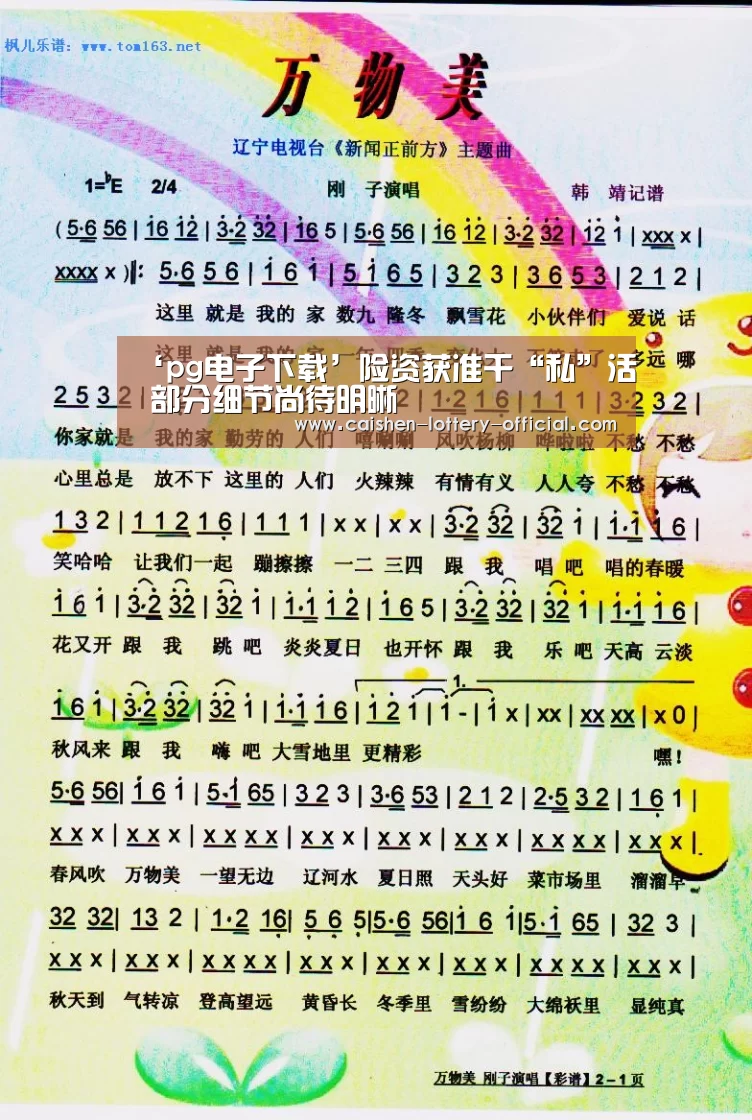 枫儿乐谱：www.tom163.net
万物美
辽宁电视台《新闻正前方》主题曲
1=ᵇE 2/4 刚 子演唱 韩 靖记谱
(5·6 56|i6 i2|3·2 32|i6 5|5·6 56|i6 i2|3·2 32|i2 i|xxx x|
xxxx x)‖: 5·6 5 6|i 6 i|5 i 6 5|3 2 3|3 6 5 3|2 1 2|
这里 就是 我的 家 数九 隆冬 飘雪花 小伙伴们 爱说 话
‘pg电子下载’险资获准干“私”活
部分细节尚待明晰
www.caishen-lottery-official.com
你家就是 我的家 勤劳的 人们 嘻唰唰 风吹杨柳 哗啦啦 不愁 不愁
心里总是 放不下 这里的 人们 火辣辣 有情有义 人人夸 不愁 不愁
1 3 2|1 1 2 1 6|1 1 1|x x|x x|3·2 32|32 i|i·i i 6|
笑哈哈 让我们一起 蹦擦擦 一二 三四 跟 我 唱 吧 唱的春暖
i 6 i|3·2 32|32 i|i·i i 2|i 6 5|3·2 32|32 i|i·i i 6|
花又开 跟 我 跳 吧 炎炎夏日 也开怀 跟 我 乐 吧 天高 云淡
1.
i 6 i|3·2 32|32 i|i·i i 6|i 2 i|i -|i x|xx xx|xx xx|x 0|
秋风来 跟 我 嗨 吧 大雪地里 更精彩 嘿！
5·6 56|i 6 i|5·i 65|3 2 3|3·6 53|2 1 2|2·5 3 2|1 6 1|
x x x|x x x|x x x|x x x|x x x|x x x|x x x|x x x|
春风吹 万物美 一望无边 辽河水 夏日照 天头好 菜市场里 溜溜早
32 32|13 2|1·2 16|5 6 5|5·6 56|i6 i|5·i 65|32 3|
x x x|x x x|x x x|x x x|x x x|x x x|x x x|x x x|
秋天到 气转凉 登高望远 黄昏长 冬季里 雪纷纷 大绵袄里 显纯真
万物美 刚子演唱【彩谱】2－1页